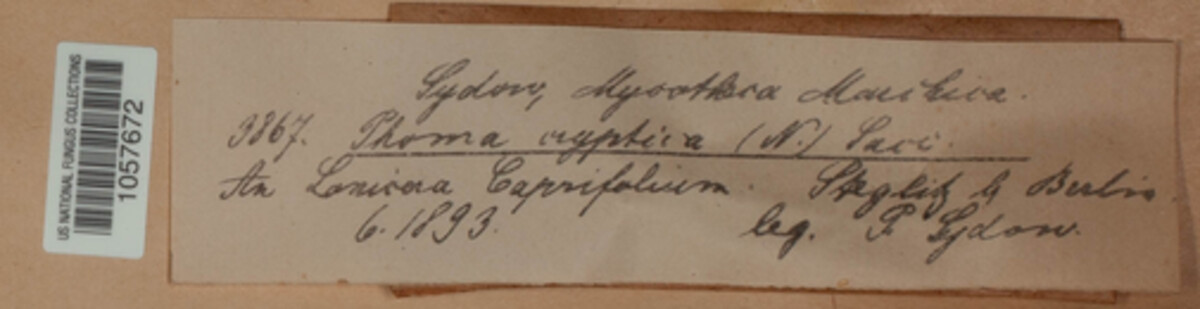 US NATIONAL FUNGUS COLLECTIONS
1057672
Sydow, Mycotheca Marchica.
3867. Phoma cryptica (N.) Sacc.
An Lonicera Caprifolium. Steglitz b Berlin
6. 1893. leg. P Sydow.